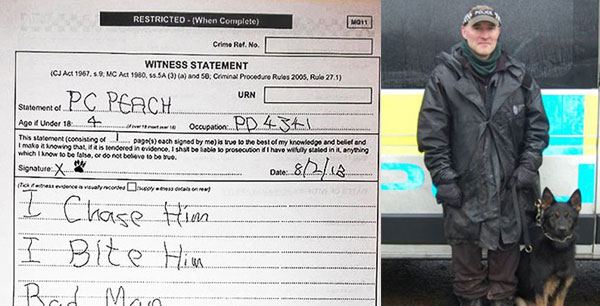 RESTRICTED - (When Complete)
MG11
Crime Ref. No.
WITNESS STATEMENT
(CJ Act 1967, s.9; MC Act 1980, ss.5A (3) (a) and 5B; Criminal Procedure Rules 2005, Rule 27.1)
URN
Statement of PC PEACH
Age if Under 18: 4 (if over 18 insert over 18) Occupation: PD4341
This statement (consisting of 1 page(s) each signed by me) is true to the best of my knowledge and belief and
I make it knowing that, if it is tendered in evidence, I shall be liable to prosecution if I have wilfully stated in it, anything
which I know to be false, or do not believe to be true.
Signature: X Date: 8/2/13
(Tick if witness evidence is visually recorded (supply witness details on rear)
I Chase Him
I BIte Him
Bad Man
POLICE